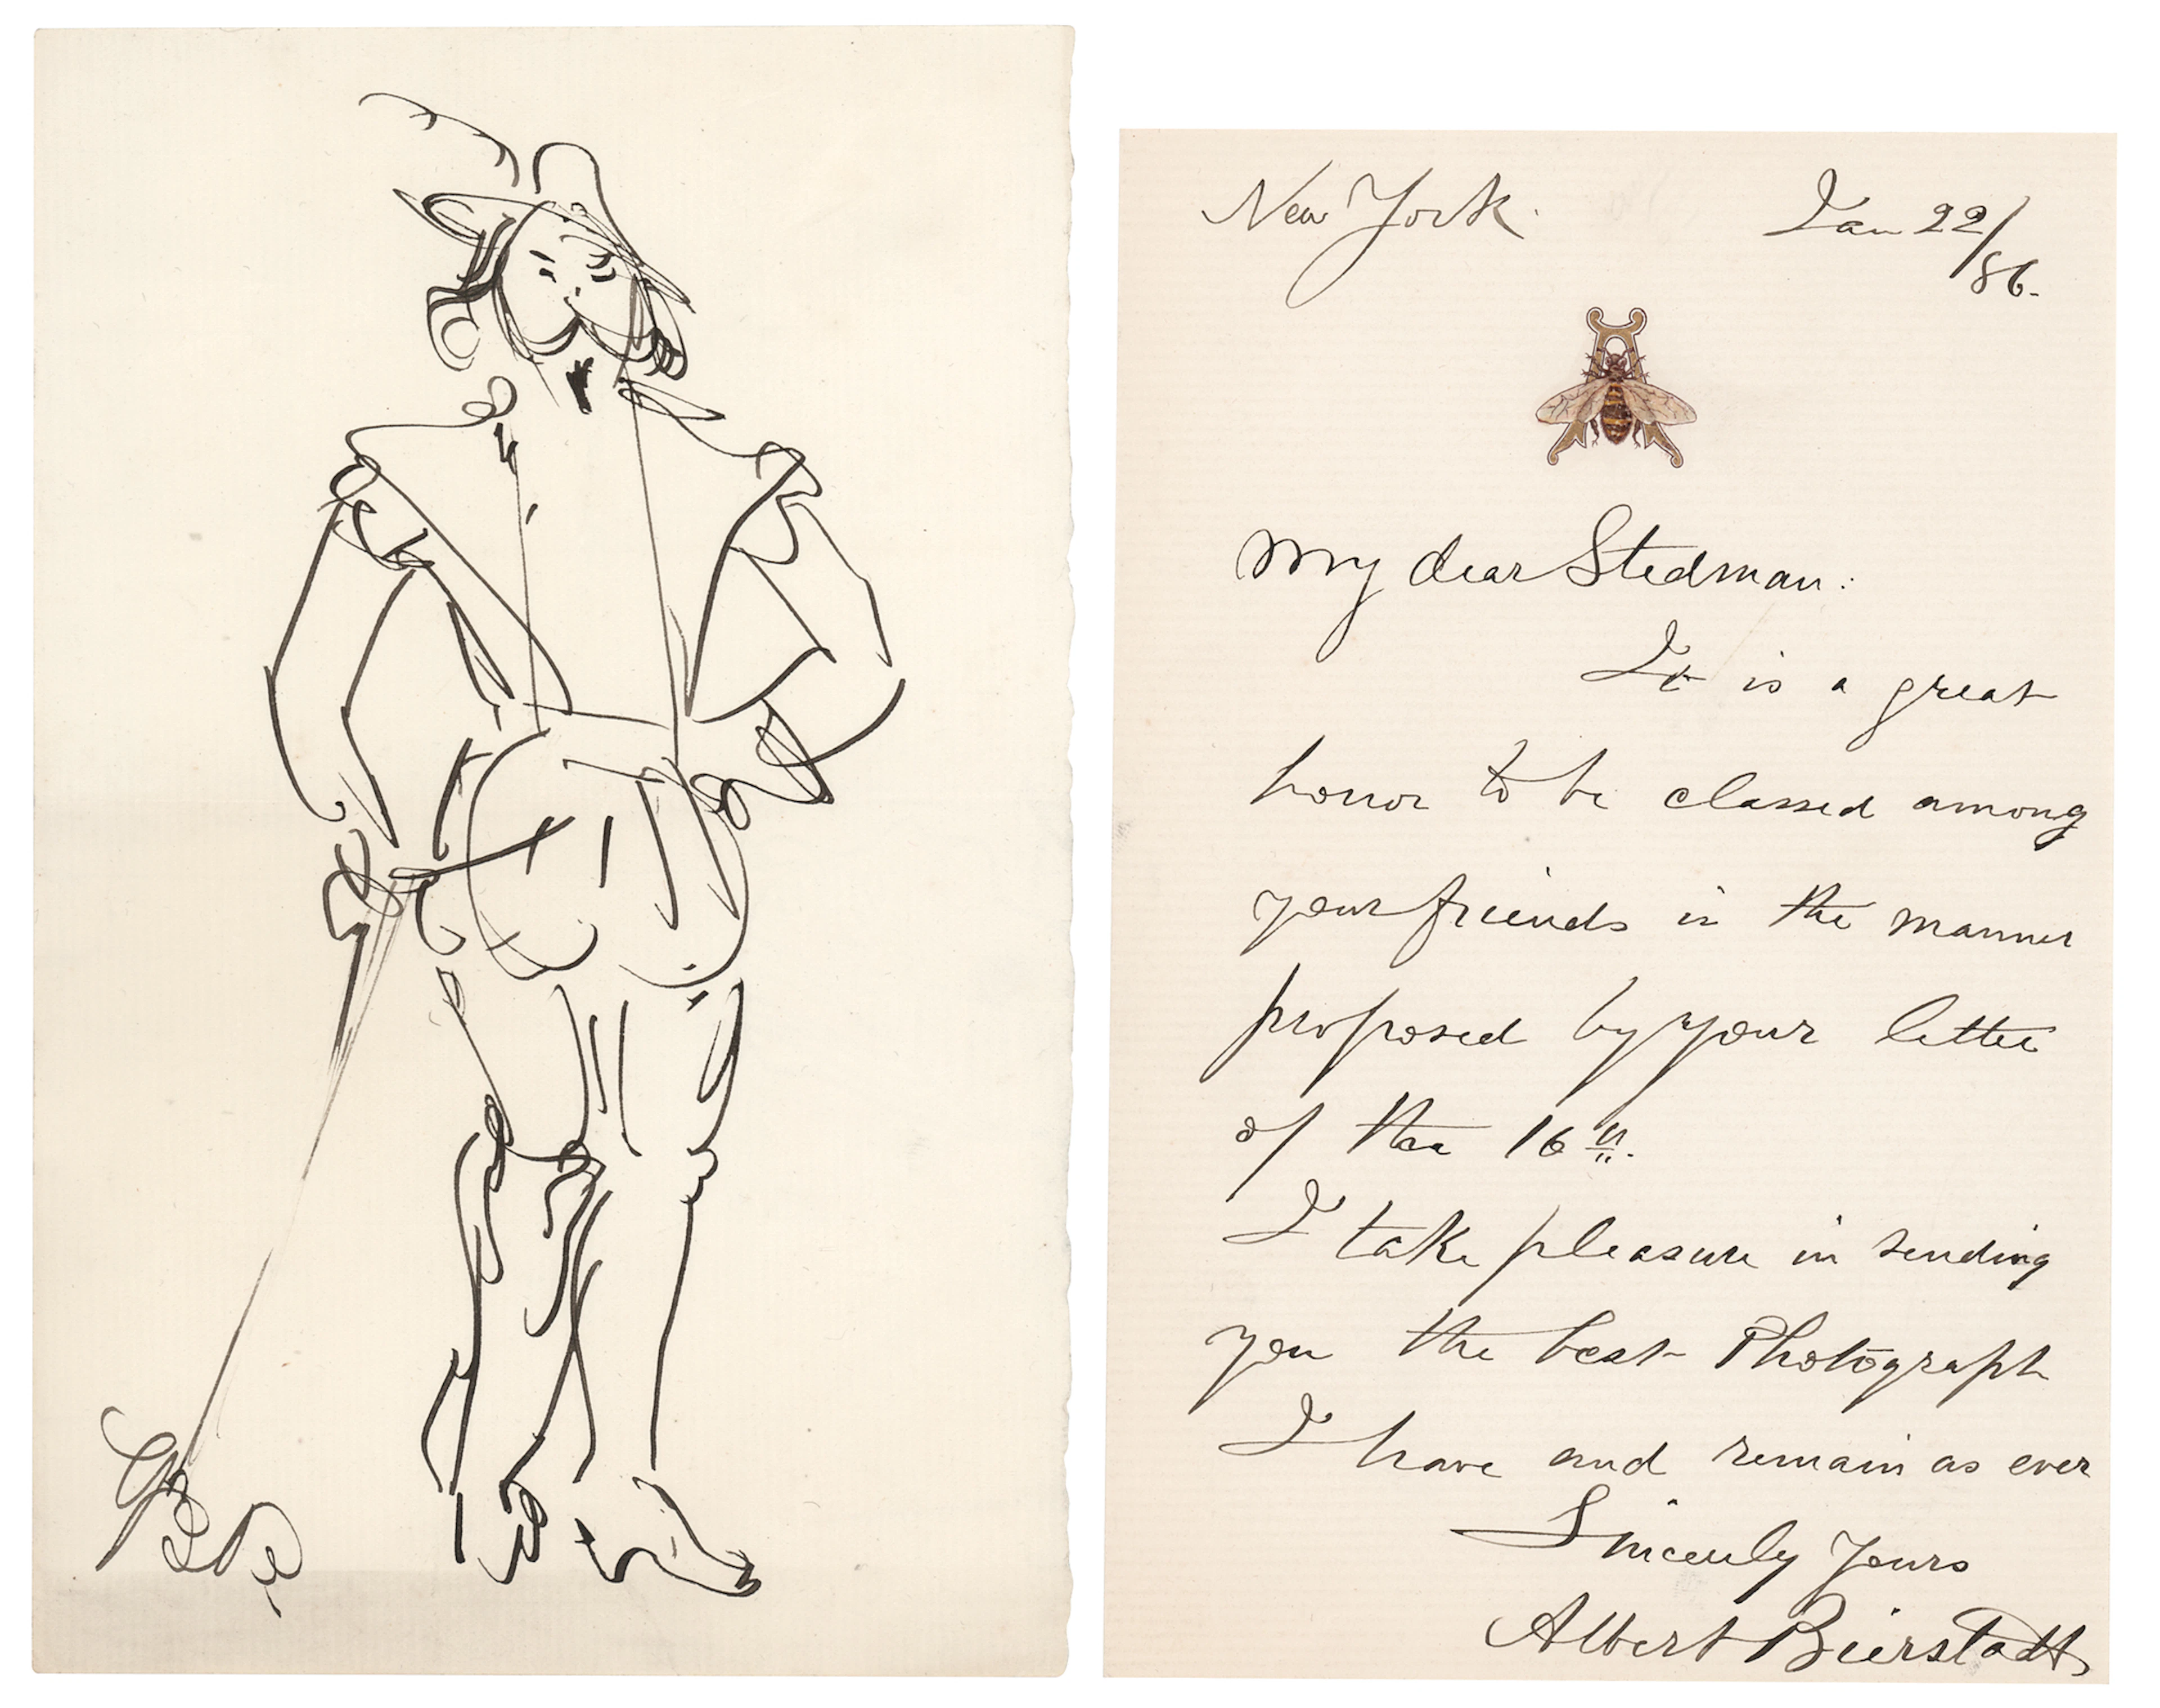 New York.
Jan 22/
86.
A
My dear Stedman:
It is a great
honor to be classed among
your friends in the manner
proposed by your letter
of the 16th.
I take pleasure in sending
you the best Photograph
I have and remain as ever
Sincerely Yours
Albert Bierstadt